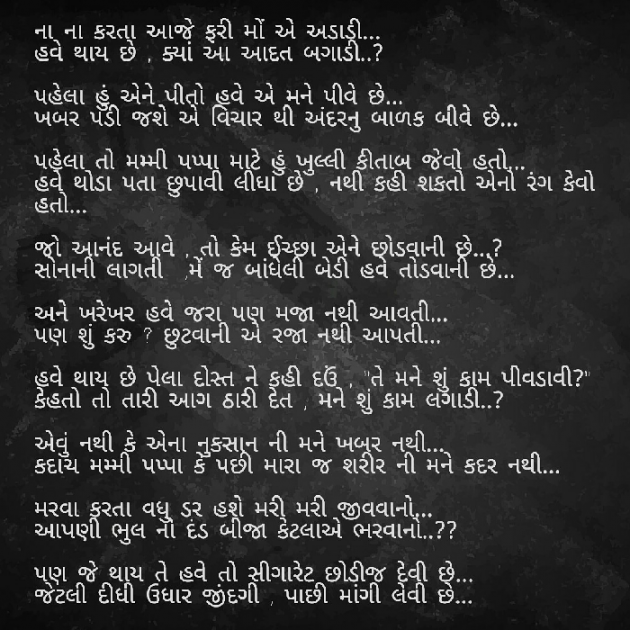 ના ના કરતા આજે ફરી મોં એ અડાડી...
હવે થાય છે , ક્યાં આ આદત બગાડી..?
પહેલા હું એને પીતો હવે એ મને પીવે છે...
ખબર પડી જશે એ વિચાર થી અંદરનુ બાળક બીવે છે...
પહેલા તો મમ્મી પપ્પા માટે હું ખુલ્લી કીતાબ જેવો હતો...
હવે થોડા પતા છુપાવી લીધા છે , નથી કહી શકતો એનો રંગ કેવો
હતો...
જો આનંદ આવે , તો કેમ ઈચ્છા એને છોડવાની છે...?
સોનાની લાગતી ,મેં જ બાંધેલી બેડી હવે તોડવાની છે...
અને ખરેખર હવે જરા પણ મજા નથી આવતી...
પણ શું કરુ ? છુટવાની એ રજા નથી આપતી...
હવે થાય છે પેલા દોસ્ત ને કહી દઉં , "તે મને શું કામ પીવડાવી?"
કેહતો તો તારી આગ ઠારી દેત , મને શું કામ લગાડી..?
એવું નથી કે એના નુકસાન ની મને ખબર નથી...
કદાચ મમ્મી પપ્પા કે પછી મારા જ શરીર ની મને કદર નથી...
મરવા કરતા વધુ ડર હશે મરી મરી જીવવાનો...
આપણી ભુલ નો દંડ બીજા કેટલાએ ભરવાનો..??
પણ જે થાય તે હવે તો સીગારેટ છોડીજ દેવી છે...
જેટલી દીધી ઉધાર જીંદગી , પાછી માંગી લેવી છે...